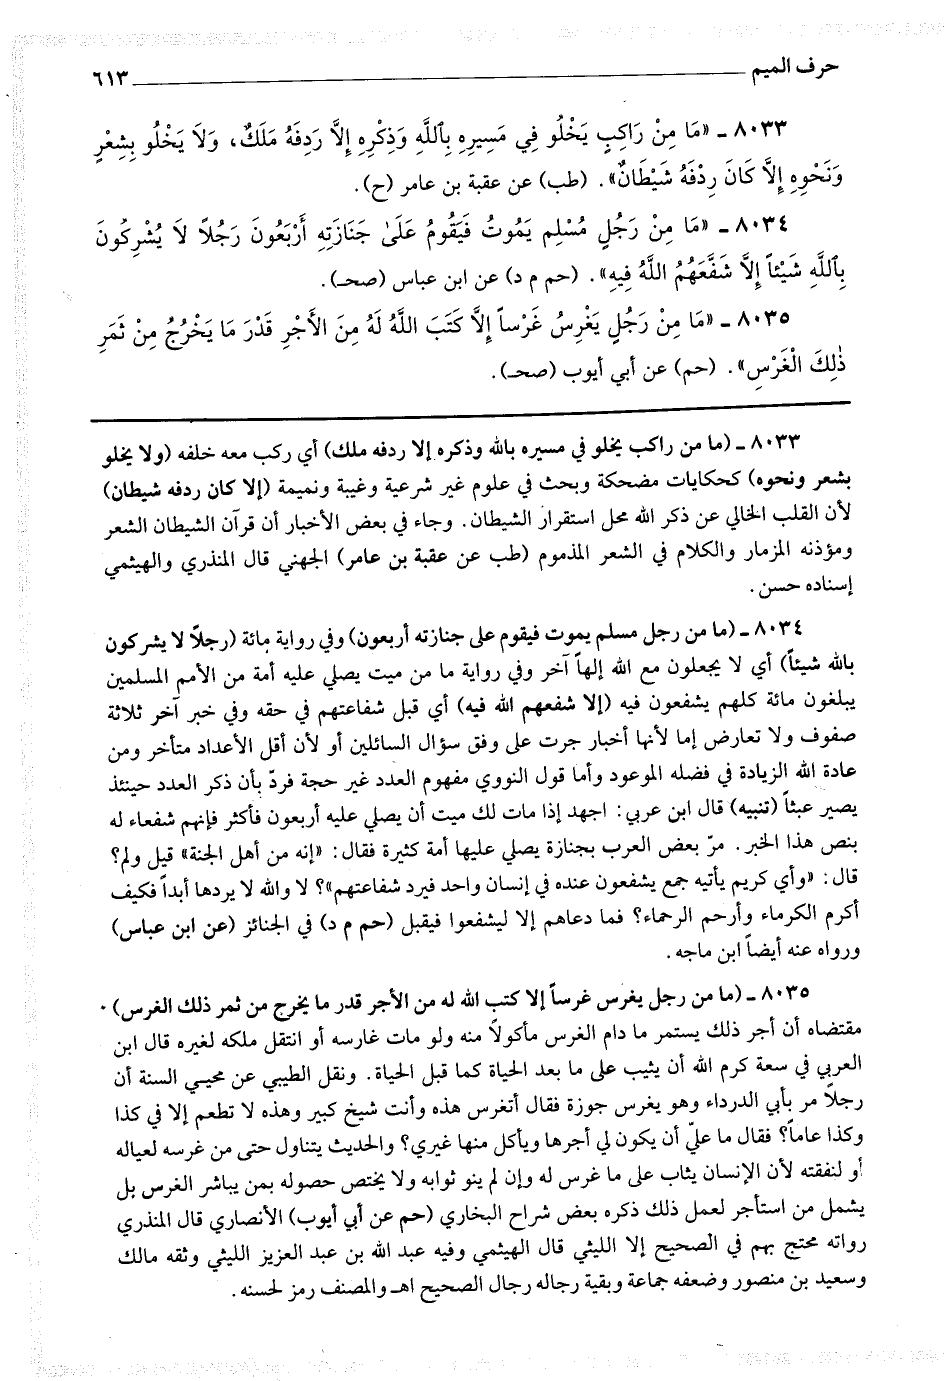 حرف الميم ٦١٣
٨٠٣٣ ـ «مَا مِنْ رَاكِبٍ يَخْلُو فِي مَسِيرِهِ بِاللَّهِ وَذِكْرِهِ إِلَّا رَدِفَهُ مَلَكٌ، وَلَا يَخْلُو بِشِعْرٍ
وَنَحْوِهِ إِلَّا كَانَ رِدْفَهُ شَيْطَانٌ». (طب) عن عقبة بن عامر (ح).
٨٠٣٤ ـ «مَا مِنْ رَجُلٍ مُسْلِمٍ يَمُوتُ فَيَقُومُ عَلَىٰ جَنَازَتِهِ أَرْبَعُونَ رَجُلاً لَا يُشْرِكُونَ
بِاللَّهِ شَيْئاً إِلَّا شَفَّعَهُمُ اللَّهُ فِيهِ». (حم م د) عن ابن عباس (صحـ).
٨٠٣٥ ـ «مَا مِنْ رَجُلٍ يَغْرِسُ غَرْساً إِلَّا كَتَبَ اللَّهُ لَهُ مِنَ الأَجْرِ قَدْرَ مَا يَخْرُجُ مِنْ ثَمَرِ
ذٰلِكَ الْغَرْسِ». (حم) عن أبي أيوب (صحـ).
٨٠٣٣ ـ (ما من راكب يخلو في مسيره بالله وذكره إلا ردفه ملك) أي ركب معه خلفه (ولا يخلو
بشعر ونحوه) كحكايات مضحكة وبحث في علوم غير شرعية وغيبة ونميمة (إلا كان ردفه شيطان)
لأن القلب الخالي عن ذكر الله محل استقرار الشيطان. وجاء في بعض الأخبار أن قرآن الشيطان الشعر
ومؤذنه المزمار والكلام في الشعر المذموم (طب عن عقبة بن عامر) الجهني قال المنذري والهيثمي
إسناده حسن.
٨٠٣٤ ـ (ما من رجل مسلم يموت فيقوم على جنازته أربعون) وفي رواية مائة (رجلاً لا يشركون
بالله شيئاً) أي لا يجعلون مع الله إلهاً آخر وفي رواية ما من ميت يصلي عليه أمة من الأمم المسلمين
يبلغون مائة كلهم يشفعون فيه (إلا شفعهم الله فيه) أي قبل شفاعتهم في حقه وفي خبر آخر ثلاثة
صفوف ولا تعارض إما لأنها أخبار جرت على وفق سؤال السائلين أو لأن أقل الأعداد متأخر ومن
عادة الله الزيادة في فضله الموعود وأما قول النووي مفهوم العدد غير حجة فردّ بأن ذكر العدد حينئذ
يصير عبثاً (تنبيه) قال ابن عربي: اجهد إذا مات لك ميت أن يصلي عليه أربعون فأكثر فإنهم شفعاء له
بنص هذا الخبر. مرّ بعض العرب بجنازة يصلي عليها أمة كثيرة فقال: «إنه من أهل الجنة» قيل ولم؟
قال: «وأي كريم يأتيه جمع يشفعون عنده في إنسان واحد فيرد شفاعتهم»؟ لا والله لا يردها أبداً فكيف
أكرم الكرماء وأرحم الرحماء؟ فما دعاهم إلا ليشفعوا فيقبل (حم م د) في الجنائز (عن ابن عباس)
ورواه عنه أيضاً ابن ماجه.
٨٠٣٥ ـ (ما من رجل يغرس غرساً إلا كتب الله له من الأجر قدر ما يخرج من ثمر ذلك الغرس)
مقتضاه أن أجر ذلك يستمر ما دام الغرس مأكولاً منه ولو مات غارسه أو انتقل ملكه لغيره قال ابن
العربي في سعة كرم الله أن يثيب على ما بعد الحياة كما قبل الحياة. ونقل الطيبي عن محيي السنة أن
رجلاً مر بأبي الدرداء وهو يغرس جوزة فقال أتغرس هذه وأنت شيخ كبير وهذه لا تطعم إلا في كذا
وكذا عاماً؟ فقال ما عليّ أن يكون لي أجرها ويأكل منها غيري؟ والحديث يتناول حتى من غرسه لعياله
أو لنفقته لأن الإنسان يثاب على ما غرس له وإن لم ينو ثوابه ولا يختص حصوله بمن يباشر الغرس بل
يشمل من استأجر لعمل ذلك ذكره بعض شراح البخاري (حم عن أبي أيوب) الأنصاري قال المنذري
رواته محتج بهم في الصحيح إلا الليثي قال الهيثمي وفيه عبد الله بن عبد العزيز الليثي وثقه مالك
وسعيد بن منصور وضعفه جماعة وبقية رجاله رجال الصحيح اهـ والمصنف رمز لحسنه.